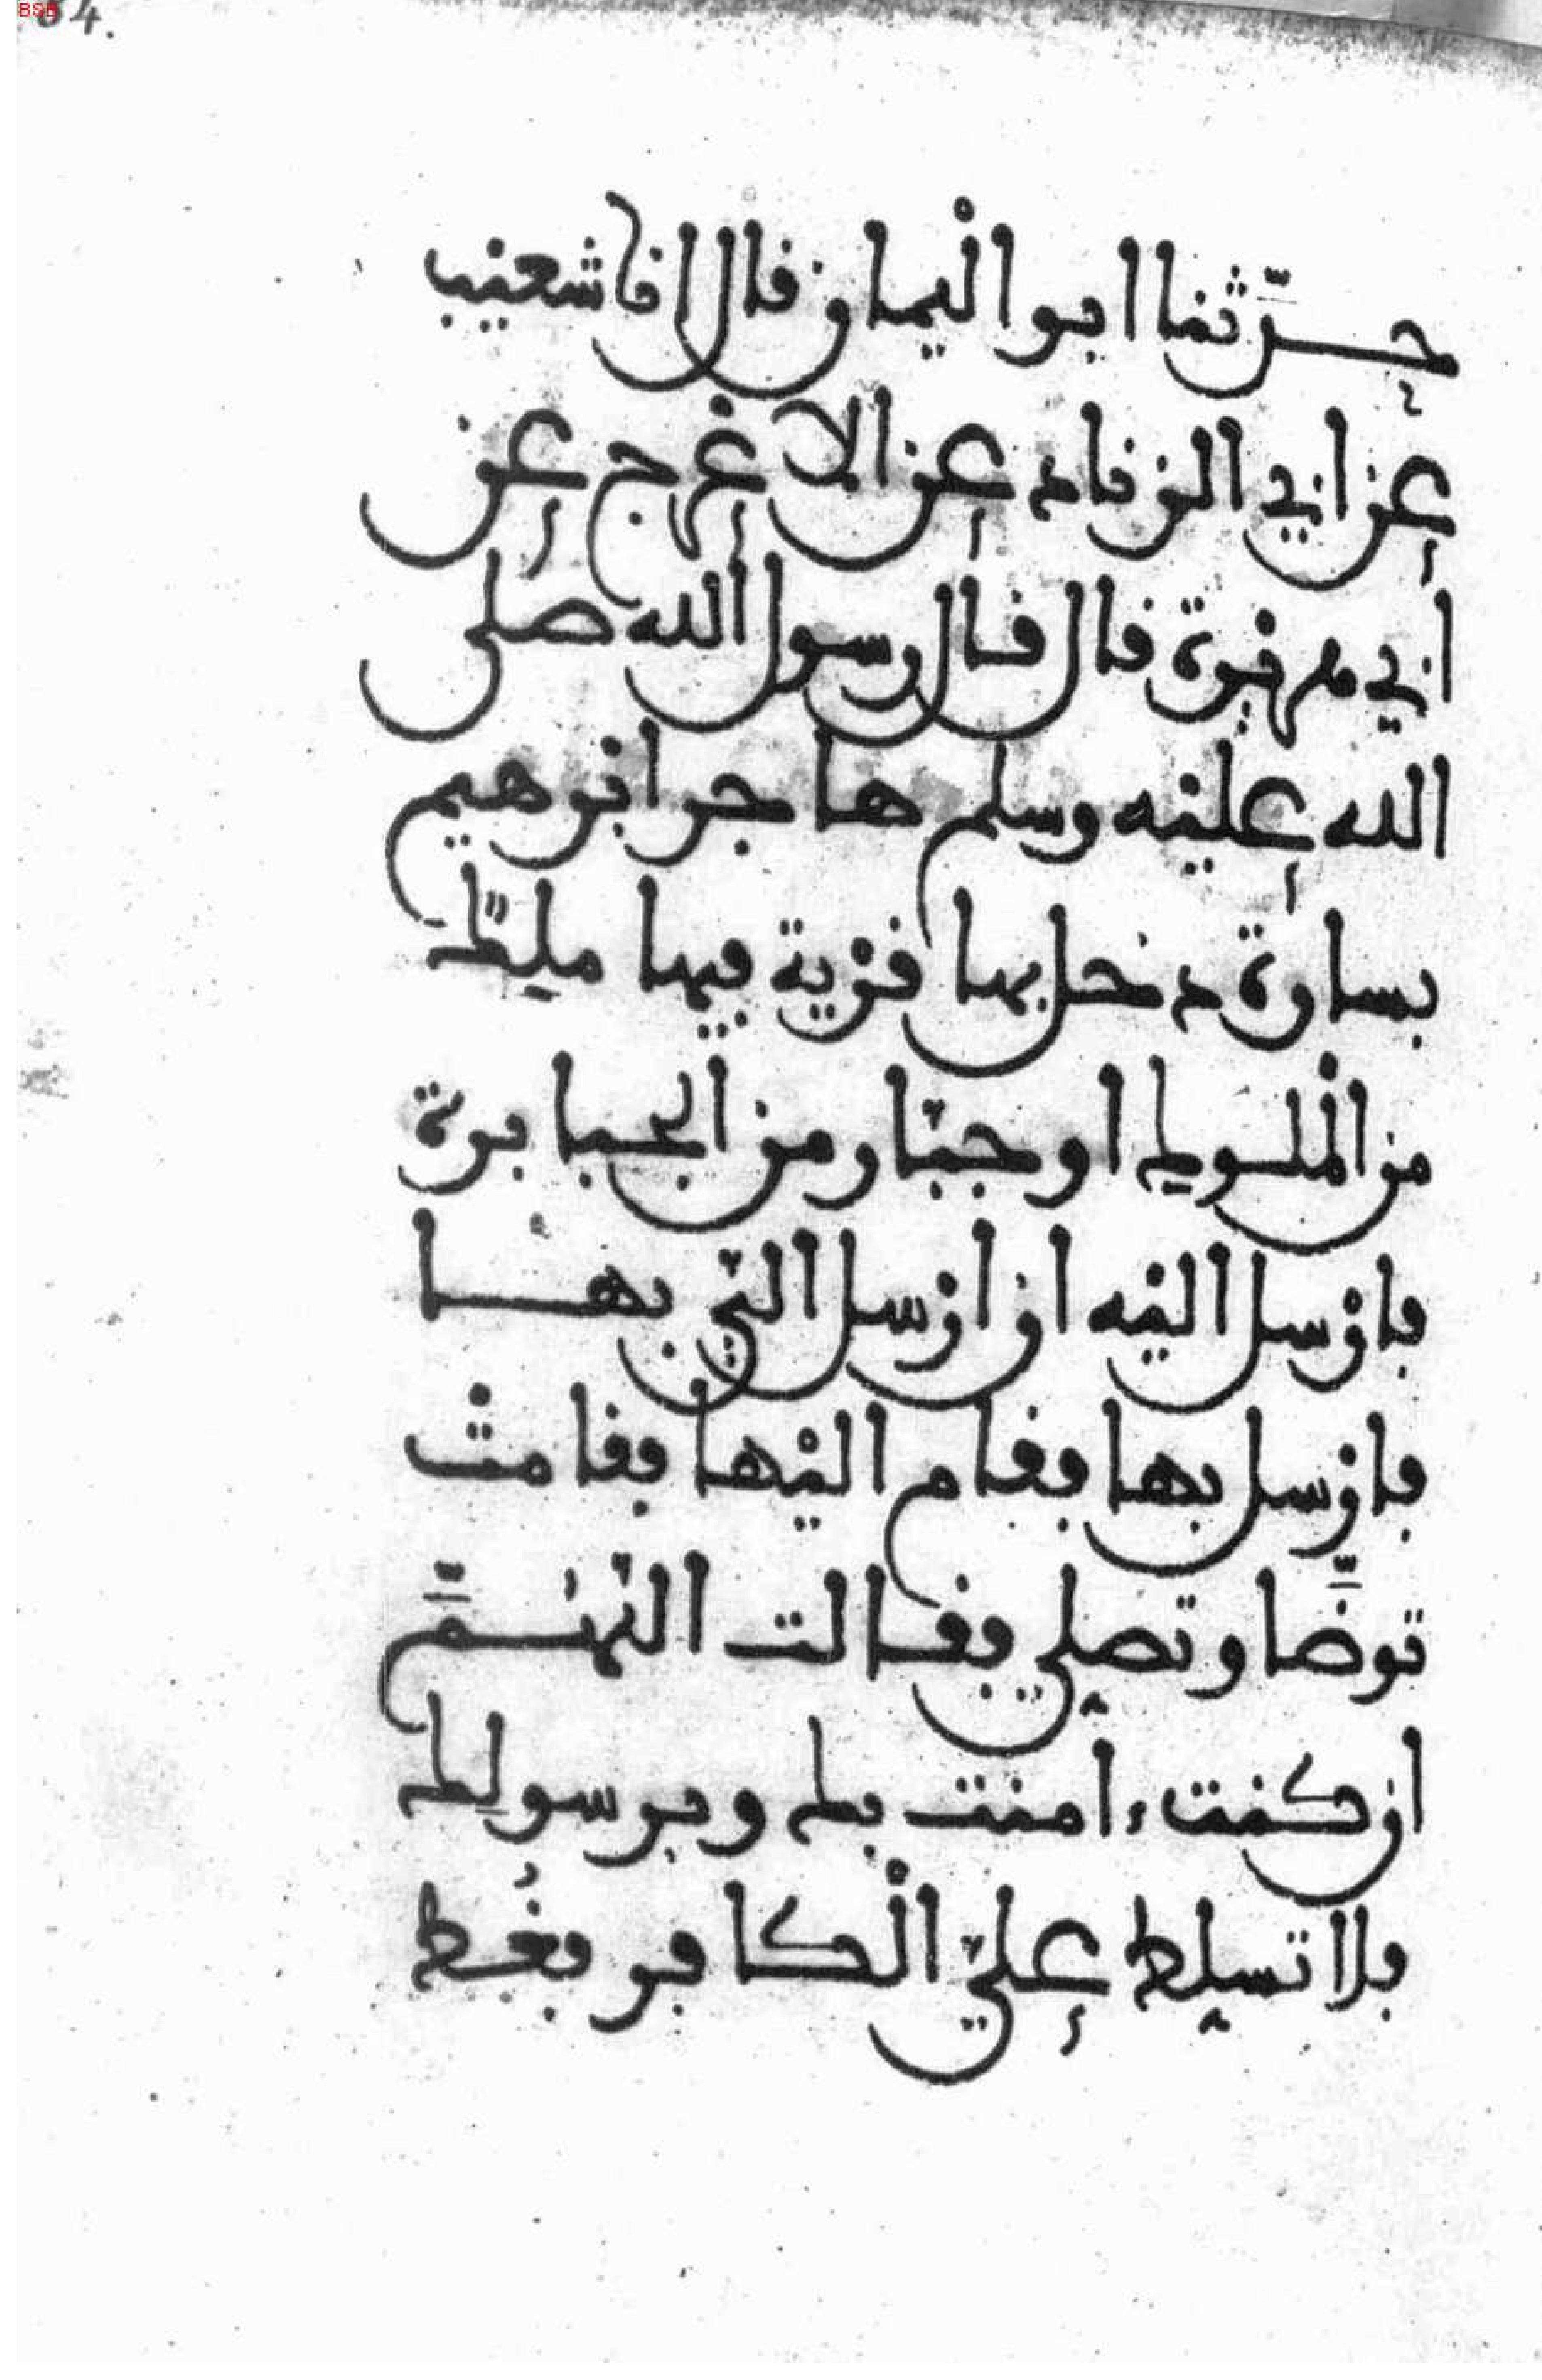 BSB
64.
حدّثنا ابو الْيمان قال انا شعيْب
عن ابي الزناد عن الاعْرج عن
ابي هريْرة قال قال رسول الله صلى
الله عليْه وسلم هاجر ابرهيم
بسارة دخل بها قرْية فيها ملِك
من الْملوك او جبّار من الجبابرة
فارْسل اليْه ان ارْسل اليّ بها
فارْسل بها فقام اليْها فقامتْ
توضّا وتصلي فقالت اللهمّ
ان كنت ءامنت بك وبرسولك
فلا تسلط عليّ الْكافر فغُط